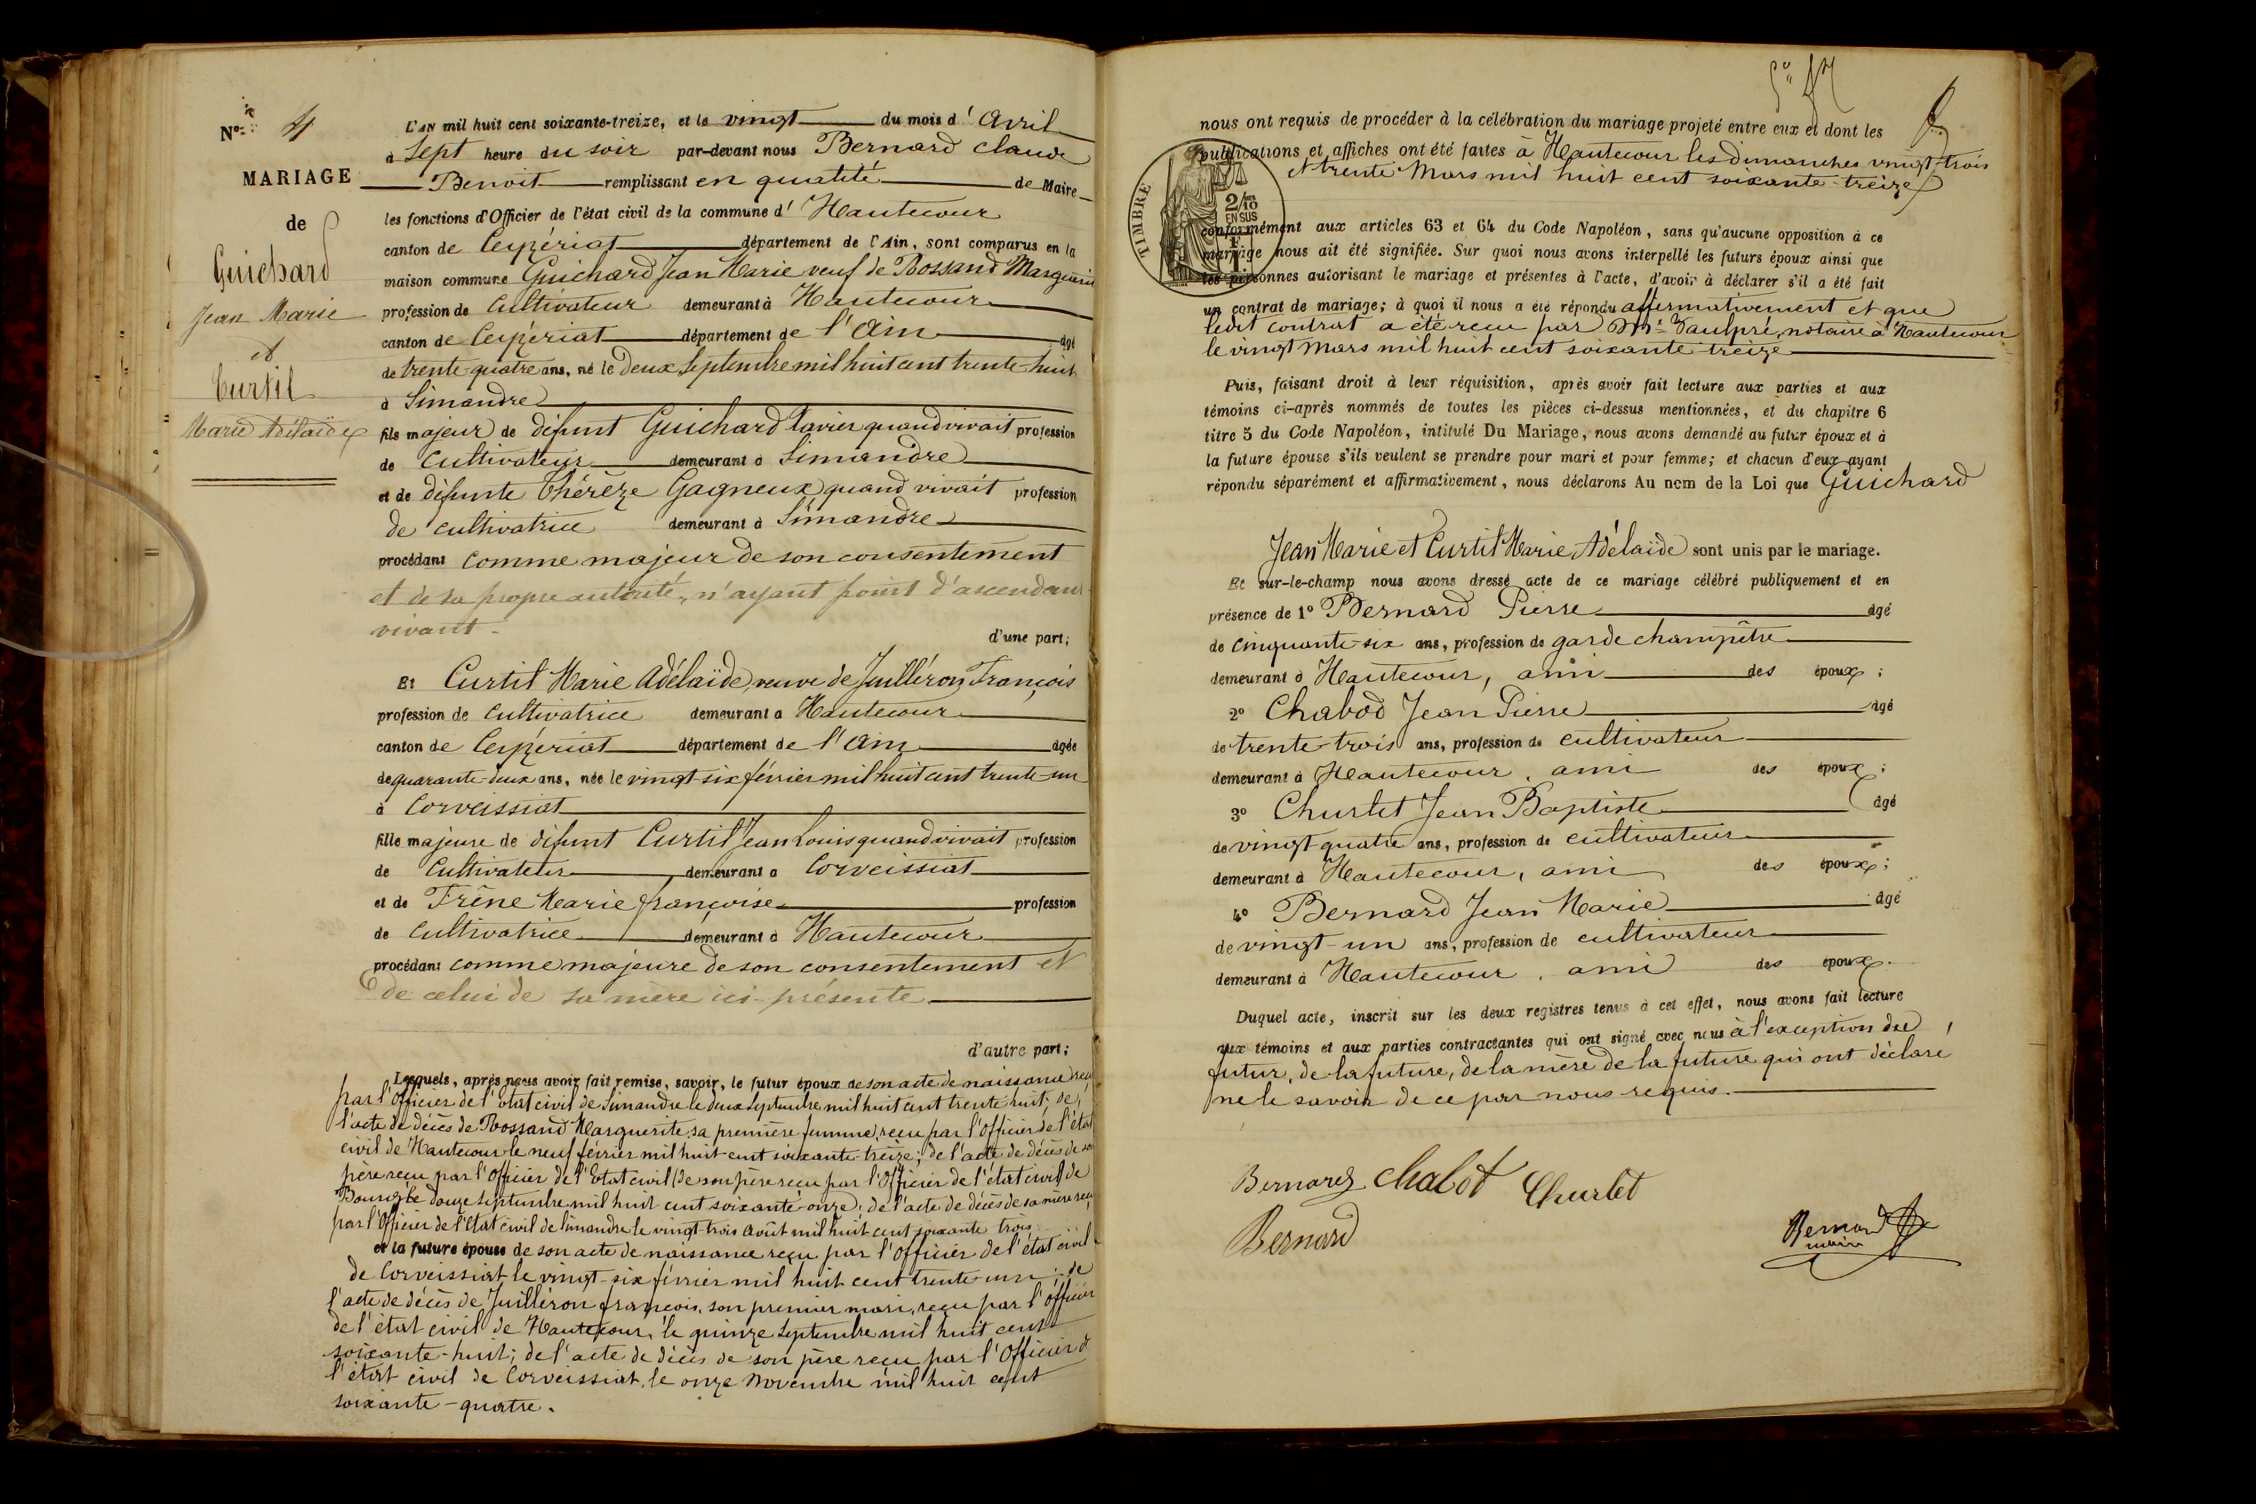 N° 4
MARIAGE
de
Guichard
Jean Marie
et
Curtil
Marie Adélaïde
L'AN mil huit cent soixante-treize, et le vingt du mois d'Avril
à Sept heure du soir par-devant nous Bernard Claude
Benoit remplissant en qualité de Maire
les fonctions d'Officier de l'état civil de la commune d'Hautecour
canton de Ceyzériat département de l'Ain, sont comparus en la
maison commune Guichard Jean Marie veuf de Bossand Marguerite
profession de Cultivateur demeurant à Hautecour
canton de Ceyzériat département de l'Ain âgé
de trente-quatre ans, né le Deux Septembre mil huit cent trente-huit
à Simandre
fils majeur de défunt Guichard Xavier quand vivait profession
de Cultivateur demeurant à Simandre
et de défunte Thérèze Gagneux quand vivait profession
de cultivatrice demeurant à Simandre
procédant comme majeur de son consentement
et de sa propre autorité, n'ayant point d'ascendant
vivant.
d'une part;
Et Curtil Marie Adélaïde, veuve de Juilléron François
profession de Cultivatrice demeurant à Hautecour
canton de Ceyzériat département de l'Ain âgée
de quarante-deux ans, née le vingt-six février mil huit cent trente-un
à Corveissiat
fille majeure de défunt Curtil Jean Louis quand vivait profession
de Cultivateur demeurant à Corveissiat
et de Frêne Marie françoise profession
de Cultivatrice demeurant à Hautecour
procédant comme majeure de son consentement et
de celui de sa mère ici présente
d'autre part;
Lesquels, après nous avoir fait remise, savoir, le futur époux de son acte de naissance reçu
par l'Officier de l'état civil de Simandre le deux Septembre mil huit cent trente huit; de
l'acte de décès de Bossand Marguerite sa première femme, reçu par l'Officier de l'état
civil de Hautecour le neuf février mil huit cent soixante-treize; de l'acte de décès de son
père reçu par l'Officier de l'Etat civil (de son père reçu par l'Officier de l'état civil) de
Bourg le douze septembre mil huit cent soixante-onze; de l'acte de décès de sa mère reçu
par l'Officier de l'Etat civil de Simandre le vingt-trois Août mil huit cent soixante trois
et la future épouse de son acte de naissance reçu par l'Officier de l'état civil
de Corveissiat le vingt-six février mil huit cent trente-un; de
l'acte de décès de Juilléron françois, son premier mari, reçu par l'Officier
de l'état civil de Hautecour, le quinze Septembre mil huit cent
soixante-huit; de l'acte de décès de son père reçu par l'Officier de
l'état civil de Corveissiat, le onze Novembre mil huit cent
soixante-quatre.
nous ont requis de procéder à la célébration du mariage projeté entre eux et dont les
publications et affiches ont été faites à Hautecour les dimanches vingt-trois
et trente Mars mil huit cent soixante-treize
TIMBRE
2/10
EN SUS
conformément aux articles 63 et 64 du Code Napoléon, sans qu'aucune opposition à ce
mariage nous ait été signifiée. Sur quoi nous avons interpellé les futurs époux ainsi que
les personnes autorisant le mariage et présentes à l'acte, d'avoir à déclarer s'il a été fait
un contrat de mariage; à quoi il nous a été répondu affirmativement et que
ledit contrat a été reçu par Mr Vaulpré, notaire à Hautecour
le vingt Mars mil huit cent soixante-treize
Puis, faisant droit à leur réquisition, après avoir fait lecture aux parties et aux
témoins ci-après nommés de toutes les pièces ci-dessus mentionnées, et du chapitre 6
titre 5 du Code Napoléon, intitulé Du Mariage, nous avons demandé au futur époux et à
la future épouse s'ils veulent se prendre pour mari et pour femme; et chacun d'eux ayant
répondu séparément et affirmativement, nous déclarons Au nom de la Loi que Guichard
Jean Marie et Curtil Marie Adélaïde sont unis par le mariage.
Et sur-le-champ nous avons dressé acte de ce mariage célébré publiquement et en
présence de 1° Bernard Pierre âgé
de cinquante-six ans, profession de garde champêtre
demeurant à Hautecour, ami des époux;
2° Chabod Jean Pierre âgé
de trente-trois ans, profession de cultivateur
demeurant à Hautecour, ami des époux;
3° Churlet Jean Baptiste âgé
de vingt quatre ans, profession de cultivateur
demeurant à Hautecour, ami des époux;
4° Bernard Jean Marie âgé
de vingt-un ans, profession de cultivateur
demeurant à Hautecour, ami des époux.
Duquel acte, inscrit sur les deux registres tenus à cet effet, nous avons fait lecture
aux témoins et aux parties contractantes qui ont signé avec nous à l'exception du
futur, de la future, de la mère de la future qui ont déclaré
ne le savoir de ce par nous requis.
Bernard Chabot Churlet
Bernard
Bernard
maire